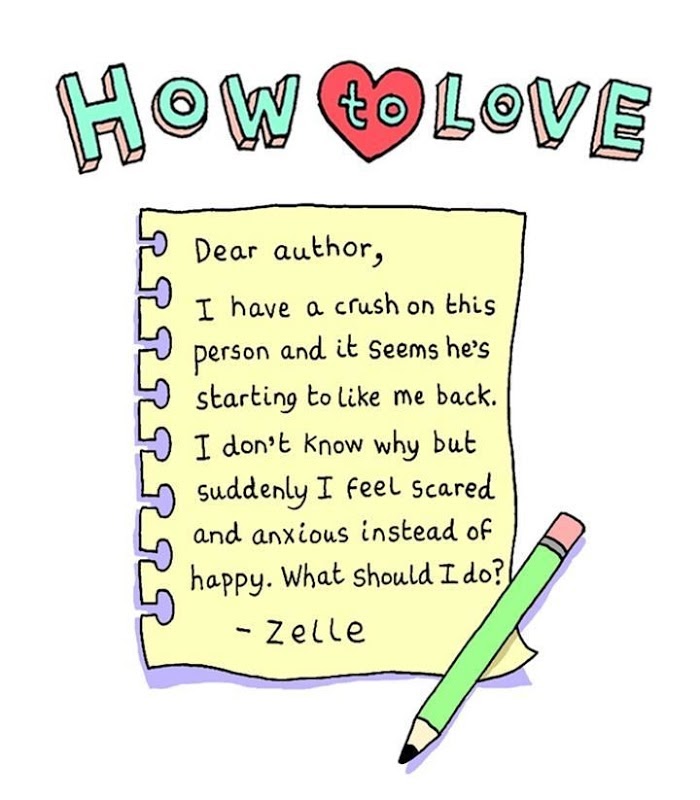 HOW to LOVE
Dear author,
I have a crush on this
person and it seems he's
starting to like me back.
I don't know why but
suddenly I feel scared
and anxious instead of
happy. What should I do?
- Zelle